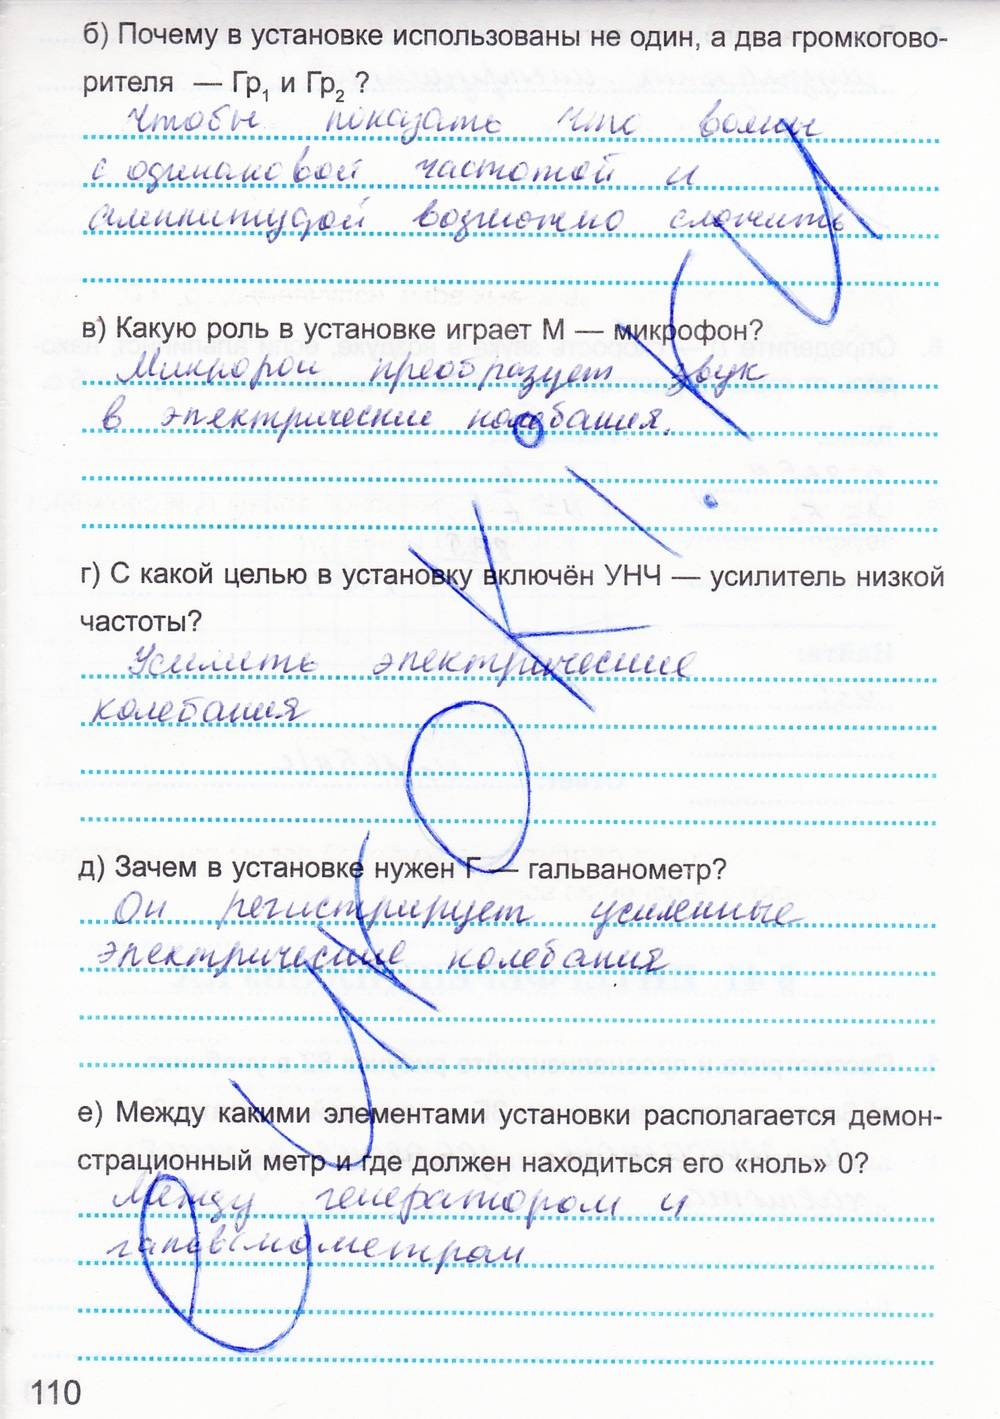 б) Почему в установке использованы не один, а два громкогово-
рителя — Гр1 и Гр2 ?
Чтобы показать что волны
с одинаковой частотой и
амплитудой возможно сложить
в) Какую роль в установке играет М — микрофон?
Микрофон преобразует звук
в электрические колебания.
г) С какой целью в установку включён УНЧ — усилитель низкой
частоты?
Усилить электрические
колебания
д) Зачем в установке нужен Г — гальванометр?
Он регистрирует усиленные
электрические колебания
е) Между какими элементами установки располагается демон-
страционный метр и где должен находиться его «ноль» 0?
Между генератором и
гальванометром
110